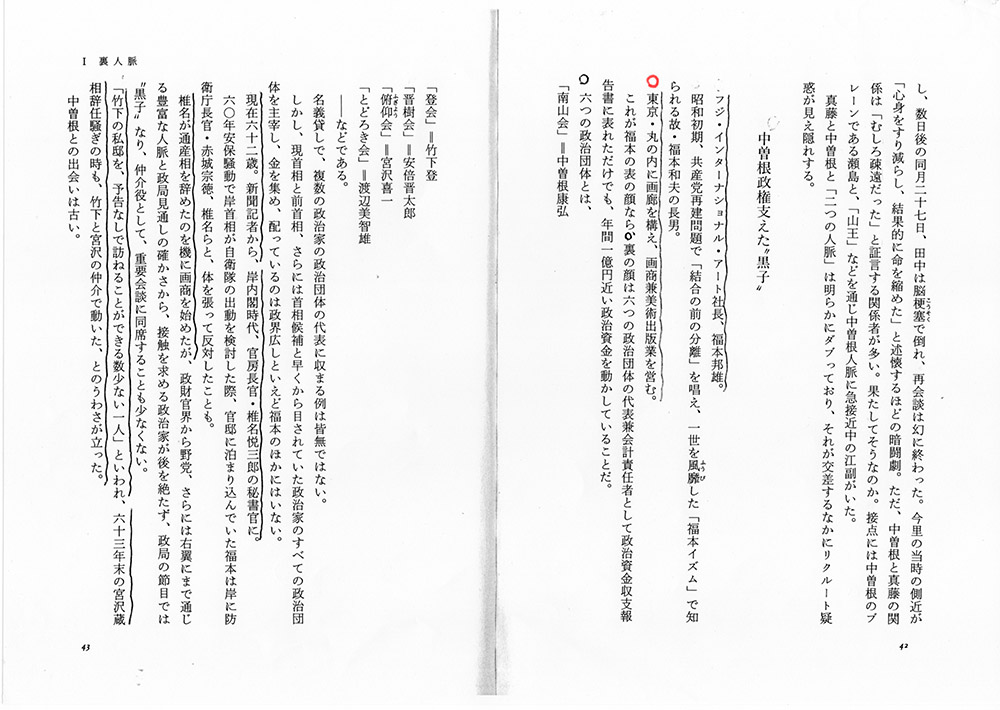 し、数日後の同月二十七日、田中は脳梗塞で倒れ、再会談は幻に終わった。今里の当時の側近が
こうそく
「心身をすり減らし、結果的に命を縮めた」と述懐するほどの暗闘劇。ただ、中曽根と真藤の関
係は「むしろ疎遠だった」と証言する関係者が多い。果たしてそうなのか。接点には中曽根のブ
レーンである瀬島と、「山王」などを通じ中曽根人脈に急接近中の江副がいた。
真藤と中曽根と「二つの人脈」は明らかにダブっており、それが交差するなかにリクルート疑
惑が見え隠れする。
中曽根政権支えた〝黒子〟
フジ・インターナショナル・アート社長、福本邦雄。
昭和初期、共産党再建問題で「結合の前の分離」を唱え、一世を風靡した「福本イズム」で知
ふうび
られる故・福本和夫の長男。
東京・丸の内に画廊を構え、画商兼美術出版業を営む。
これが福本の表の顔なら、裏の顔は六つの政治団体の代表兼会計責任者として政治資金収支報
告書に表れただけでも、年間一億円近い政治資金を動かしていることだ。
六つの政治団体とは、
「南山会」＝中曽根康弘
42
I 裏人脈
「登会」＝竹下登
「晋樹会」＝安倍晋太郎
「俯仰会」＝宮沢喜一
ふぎょう
「とどろき会」＝渡辺美智雄
――などである。
名義貸しで、複数の政治家の政治団体の代表に収まる例は皆無ではない。
しかし、現首相と前首相、さらには首相候補と早くから目されていた政治家のすべての政治団
体を主宰し、金を集め、配っているのは政界広しといえど福本のほかにはいない。
現在六十二歳。新聞記者から、岸内閣時代、官房長官・椎名悦三郎の秘書官に。
六〇年安保騒動で岸首相が自衛隊の出動を検討した際、官邸に泊まり込んでいた福本は岸に防
衛庁長官・赤城宗徳、椎名らと、体を張って反対したことも。
椎名が通産相を辞めたのを機に画商を始めたが、政財官界から野党、さらには右翼にまで通じ
る豊富な人脈と政局見通しの確かさから、接触を求める政治家が後を絶たず、政局の節目では
〝黒子〟なり、仲介役として、重要会談に同席することも少なくない。
「竹下の私邸を、予告なしで訪ねることができる数少ない一人」といわれ、六十三年末の宮沢蔵
相辞任騒ぎの時も、竹下と宮沢の仲介で動いた、とのうわさが立った。
中曽根との出会いは古い。
43